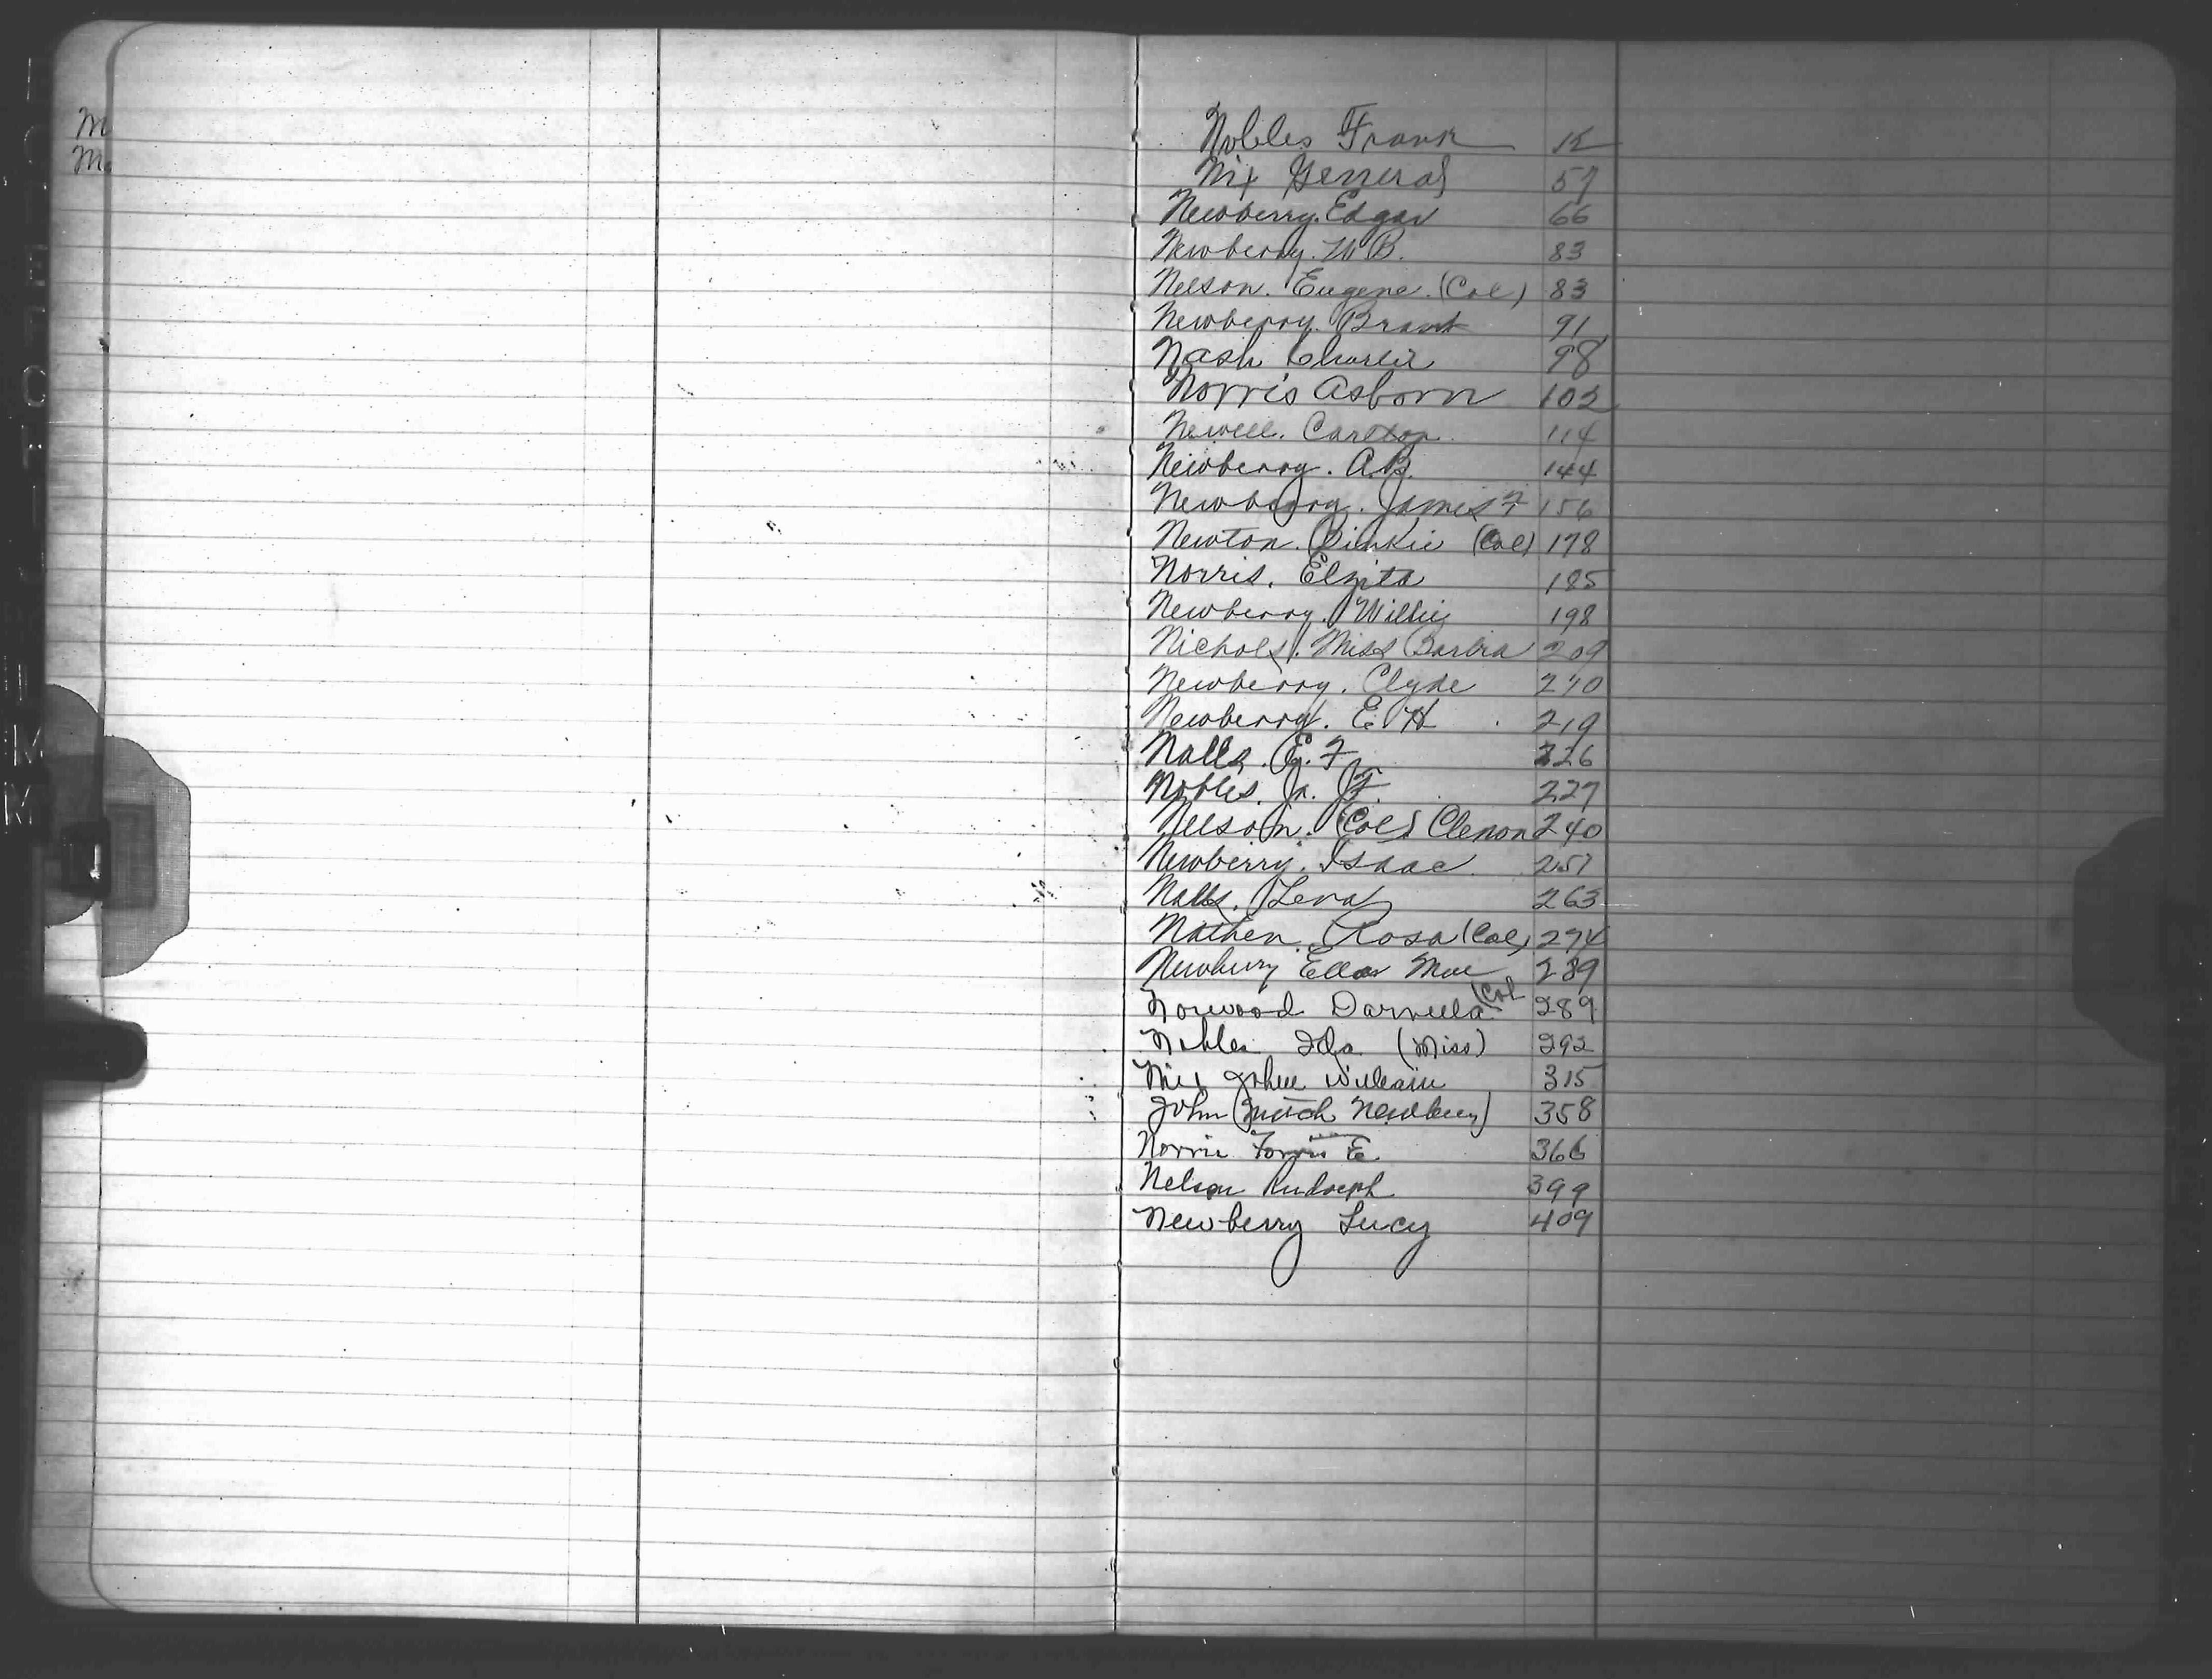 M
Mc
Nobles Frank 12
Nix General 57
Newberry. Edgar 66
Newberry. W B. 83
Nelson. Eugene. (Col) 83
Newberry. Brant 91
Nash Charlie 98
Norris Asborn 102
Newell. Carlton. 114
Newberry. A.B. 144
Newberry. James F 156
Newton. Pinkie (Col) 178
Norris. Elzita 185
Newberry. Willie 198
Nichols. Miss Barbra 209
Newberry. Clyde 210
Newberry. E. H 219
Nalls. E. F 226
Nobles. Jr. F. 227
Nelson. (Col) Clemon 240
Newberry. Isaac. 257
Nalls. Lena 263
Nathen. Rosa (Col) 274
Newbury Ella Mae 289
Norwood Darnella (Col 289
Nobles Ida (Miss) 292
Nix John William 315
John ( Newberry) 358
Norris E. 366
Nelson Rudolph 399
Newberry Lucy 409